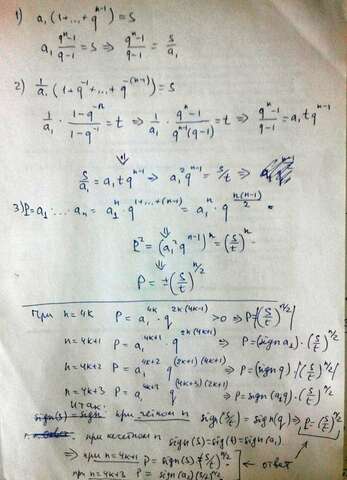 1) a₁(1+...+q^(n-1))=S
a₁ (q^n-1)/(q-1) = S ⇒ (q^n-1)/(q-1) = S/a₁
2) 1/a₁ (1+q^(-1)+...+q^(-(n-1)))=S
1/a₁ · (1-q^(-n))/(1-q^(-1)) = t ⇒ 1/a₁ · (q^n-1)/(q^(n-1)(q-1)) = t ⇒ (q^n-1)/(q-1) = a₁tq^(n-1)
⇓
S/a₁ = a₁tq^(n-1) ⇒ a₁²q^(n-1) = S/t ⇒
3) P=a₁·...·aₙ = a₁^n · q^(1+...+(n-1)) = a₁^n · q^(n(n-1)/2)
⇓
P² = (a₁² q^(n-1))^n = (S/t)^n
⇓
P = ±(S/t)^(n/2)
При n=4k P = a₁^(4k) · q^(2k(4k-1)) >0 ⇒ P=(S/t)^(n/2)
n=4k+1 P = a₁^(4k+1) q^(2k(4k+1)) ⇒ P=(sign a₁)·(S/t)^(n/2)
n=4k+2 P = a₁^(4k+2) q^((2k+1)(4k+1)) ⇒ P=(sign q)·(S/t)^(n/2)
n=4k+3 P = a₁^(4k+3) q^((4k+3)(2k+1)) ⇒ P=sign(a₁q)·(S/t)^(n/2)
Итак:
при чётном n sign(S/t) = sign(q) ⇒
при нечетном n sign(S)=sign(t)=sign(a₁)
⇒ при n=4k+1 P=sign(S) (S/t)^(n/2) ← ответ
при n=4k+3 P=